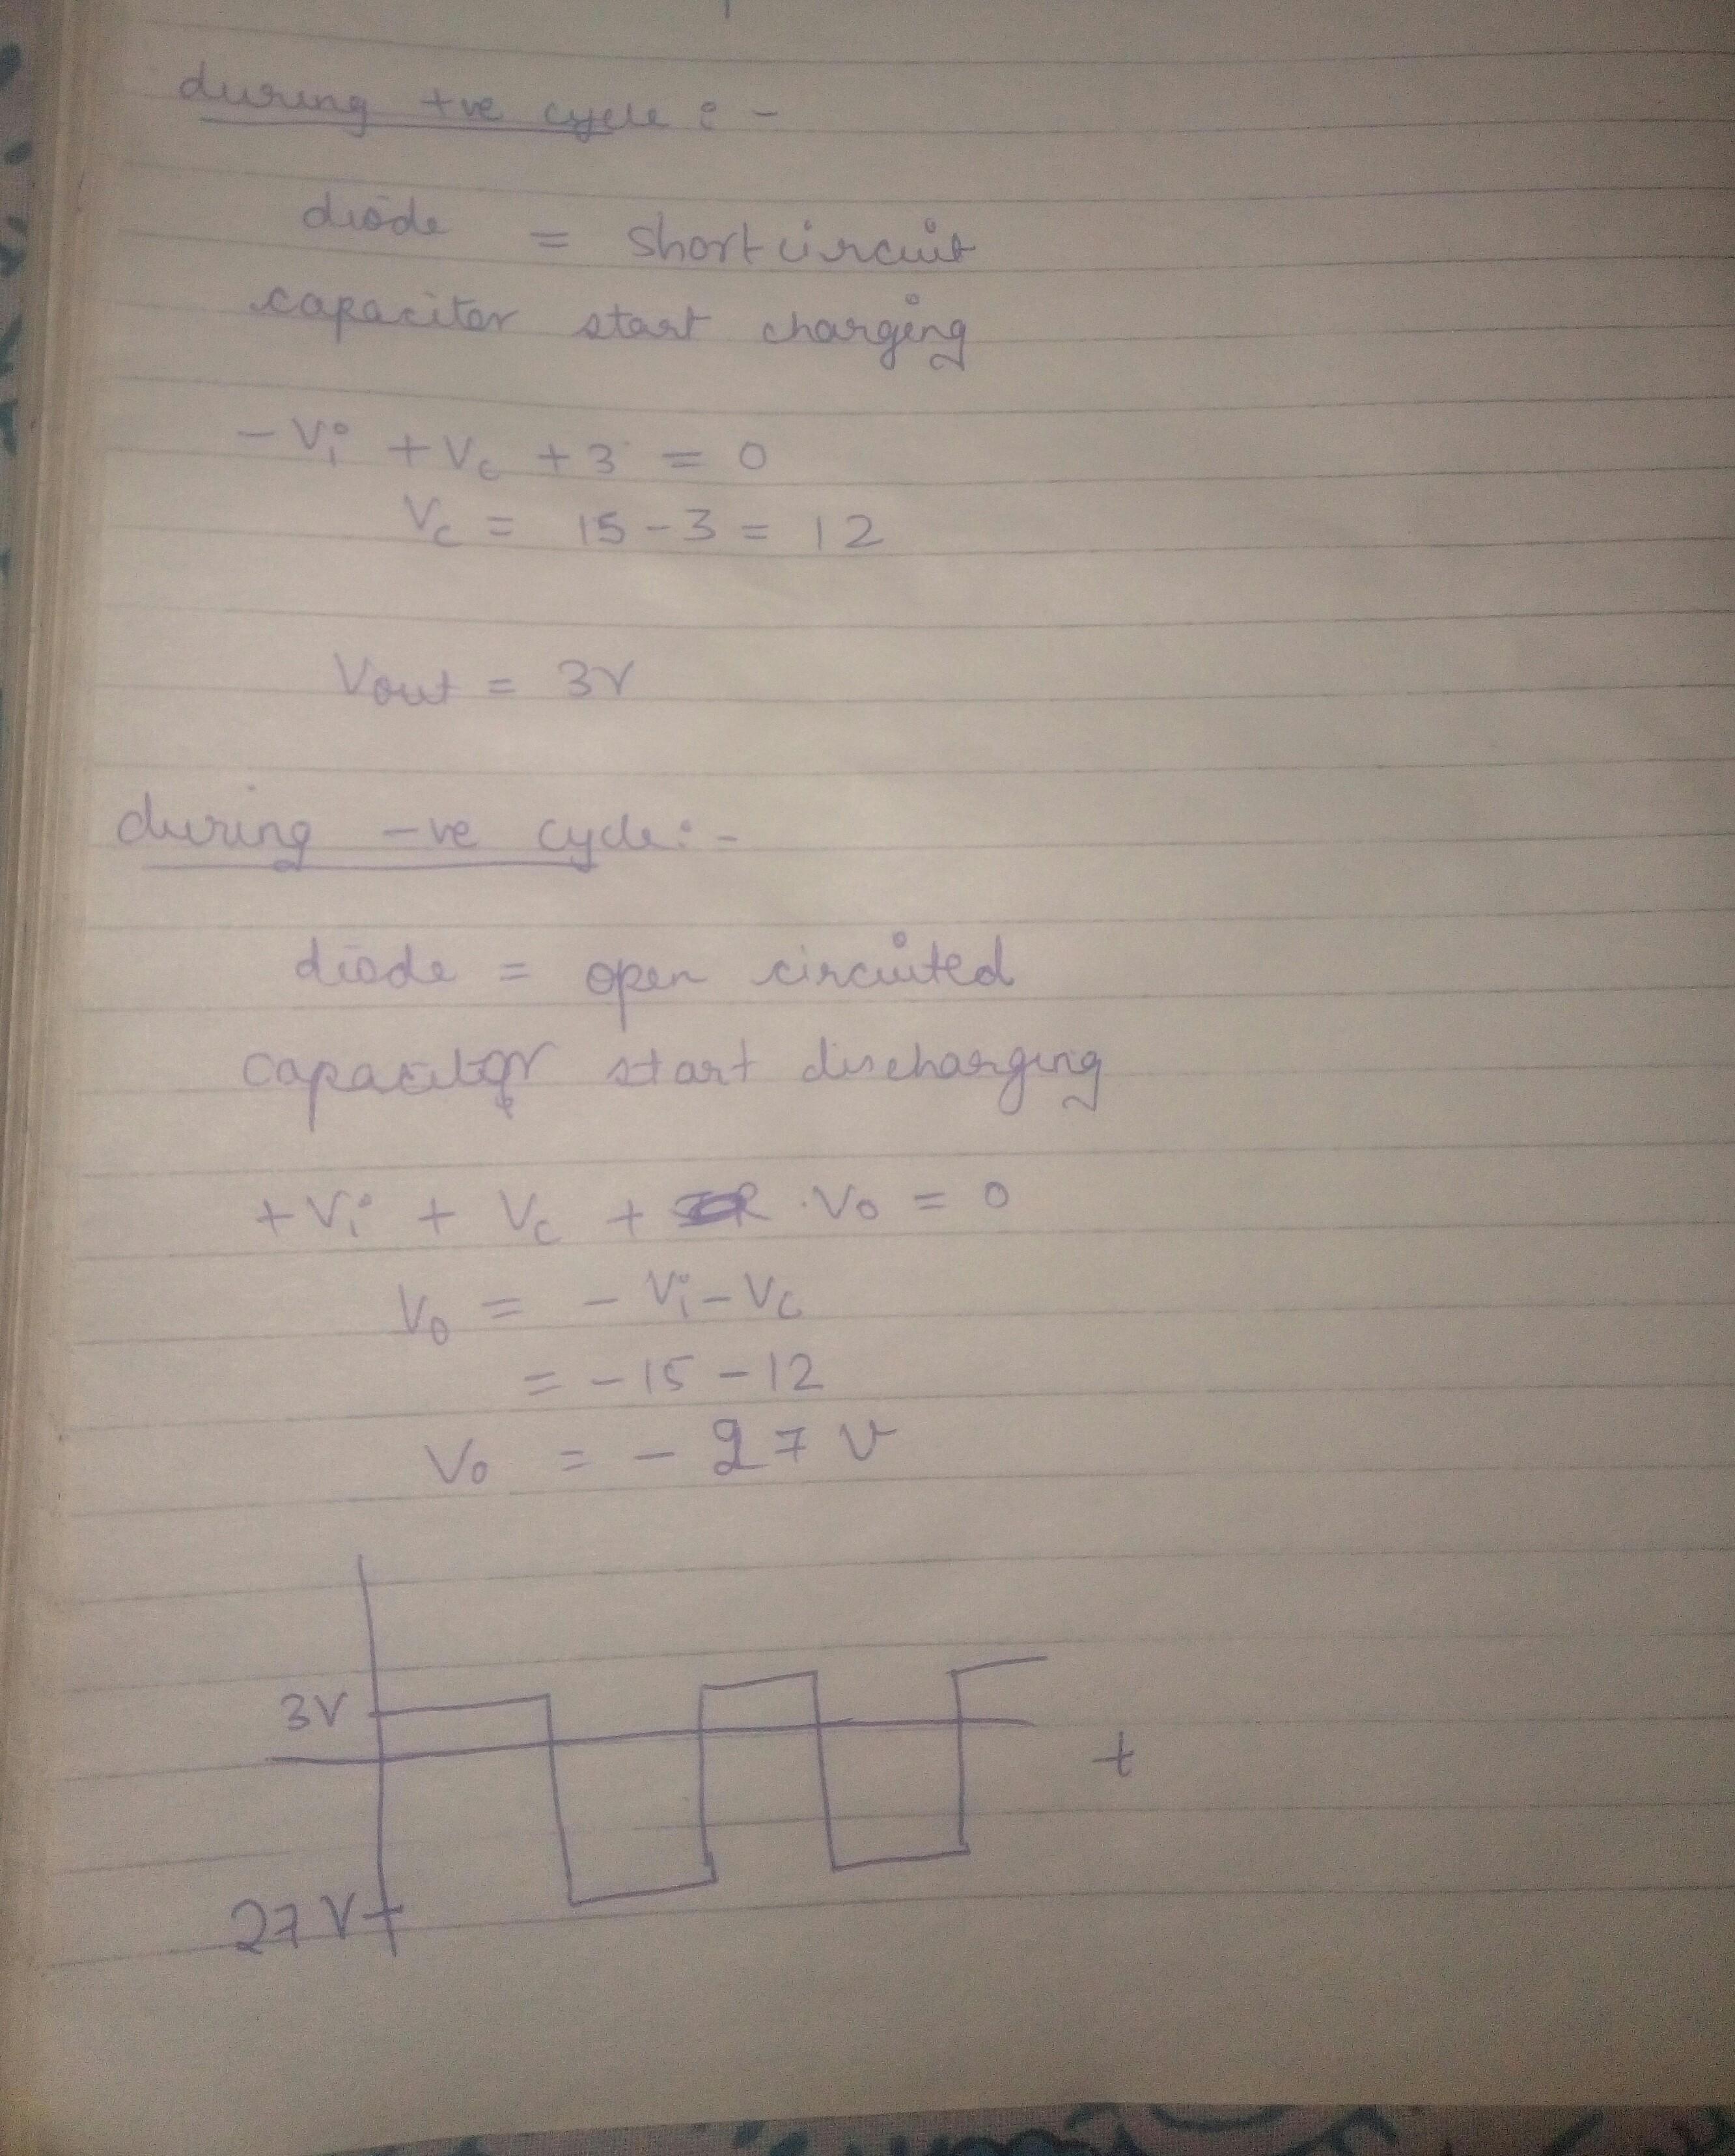 during +ve cycle : -
diode = short circuit
capacitor start charging
- Vi + Vc + 3 = 0
Vc = 15 - 3 = 12
Vout = 3V
during -ve cycle : -
diode = open circuited
capacitor start discharging
+ Vi + Vc + Vo = 0
Vo = - Vi - Vc
= - 15 - 12
Vo = - 27 V
3V
t
27 V